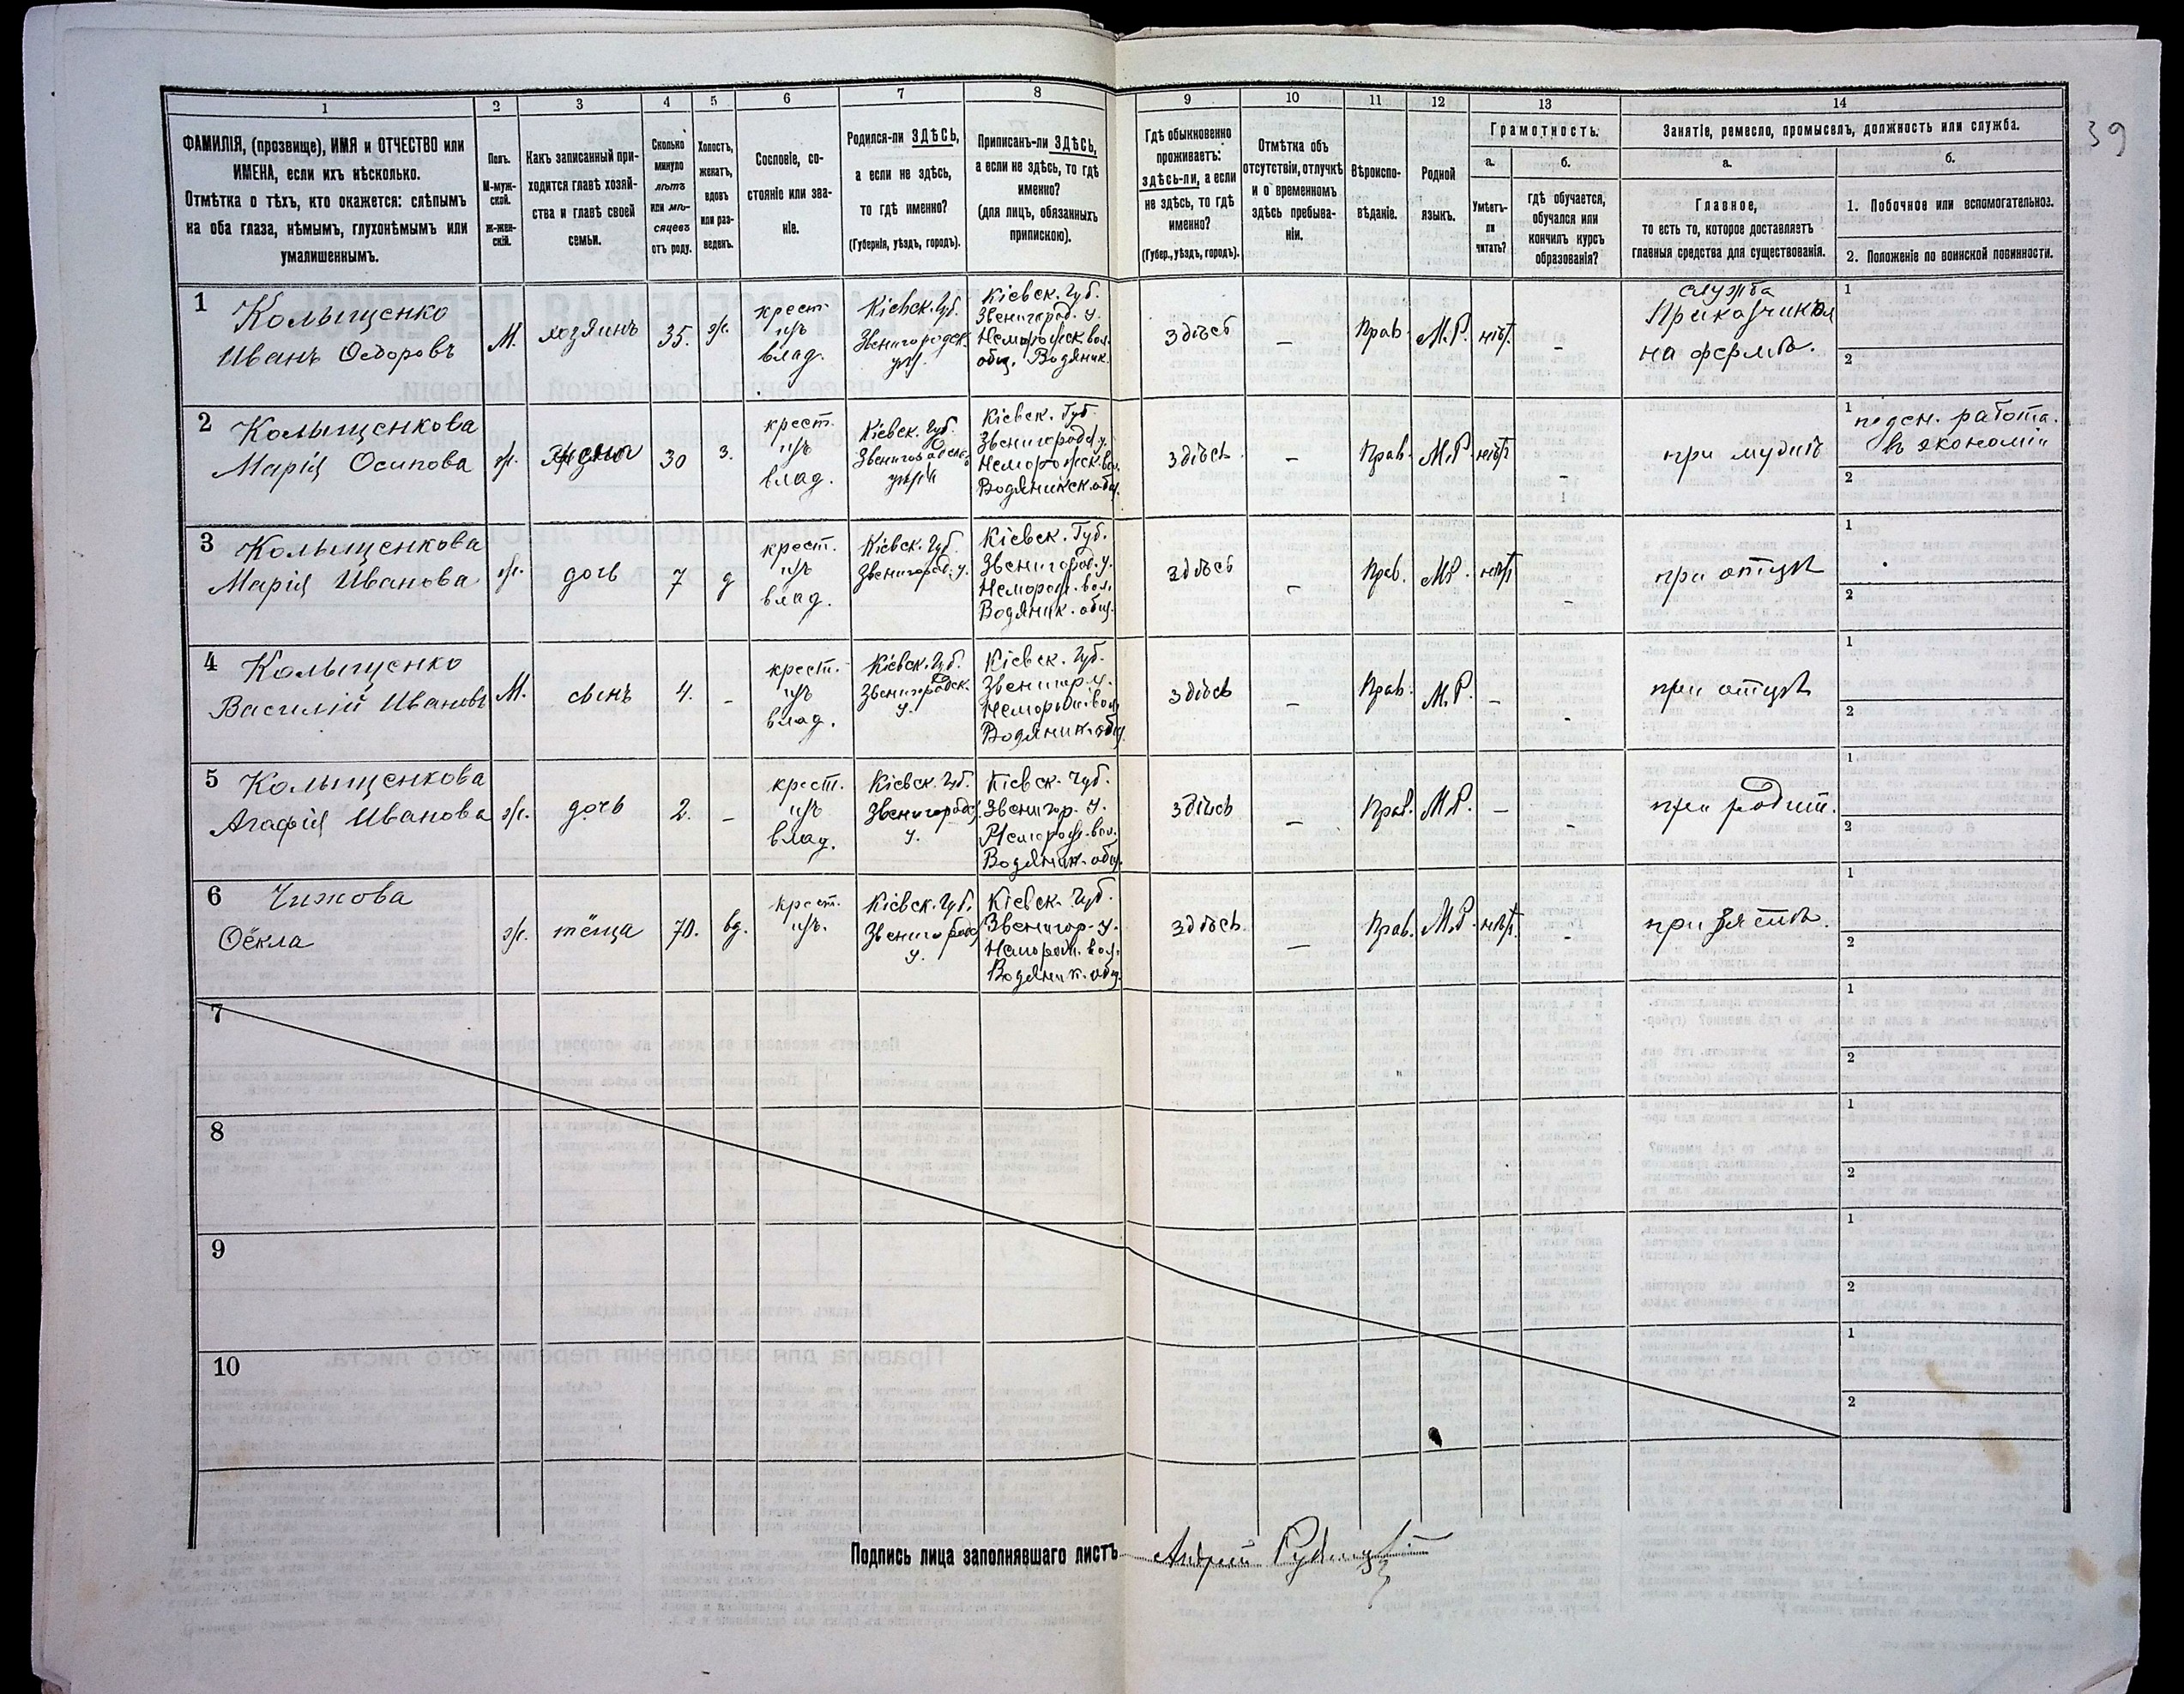 39
1
2
3
4
5
6
7
8
9
10
11
12
13
14
ФАМИЛІЯ, (прозвище), ИМЯ и ОТЧЕСТВО или
ИМЕНА, если ихъ нѣсколько.
Отмѣтка о тѣхъ, кто окажется: слѣпымъ
на оба глаза, нѣмымъ, глухонѣмымъ или
умалишеннымъ.
Полъ.
М-муж-
ской.
Ж-жен-
скій.
Какъ записанный при-
ходится главѣ хозяй-
ства и главѣ своей
семьи.
Сколько
минуло
лѣтъ
или мѣ-
сяцевъ
отъ роду.
Холостъ,
женатъ,
вдовъ
или раз-
веденъ.
Сословіе, со-
стояніе или зва-
ніе.
Родился-ли ЗДѢСЬ,
а если не здѣсь,
то гдѣ именно?
(Губернія, уѣздъ, городъ).
Приписанъ-ли ЗДѢСЬ,
а если не здѣсь, то гдѣ
именно?
(для лицъ, обязанныхъ
припискою).
Гдѣ обыкновенно
проживаетъ:
здѣсь-ли, а если
не здѣсь, то гдѣ
именно?
(Губер., уѣздъ, городъ).
Отмѣтка объ
отсутствіи, отлучкѣ
и о временномъ
здѣсь пребыва-
ніи.
Вѣроиспо-
вѣданіе.
Родной
языкъ.
Грамотность.
а.
Умѣетъ-
ли
читать?
б.
гдѣ обучается,
обучался или
кончилъ курсъ
образованія?
Занятіе, ремесло, промыселъ, должность или служба.
а.
Главное,
то есть то, которое доставляетъ
главныя средства для существованія.
б.
1. Побочное или вспомогательное.
2. Положеніе по воинской повинности.
1
Колыщенко
Иванъ Ѳедоровъ
М.
хозяинъ
35.
ж.
крест.
изъ
влад.
Кіевск. Губ.
Звенигородск.
Кіевск. Губ.
Звенигород. у.
общ. Водяник.
здѣсь
–
Прав.
М.Р.
нѣтъ
–
служба
на фермѣ.
1
2
2
Колыщенкова
Марія Осипова
ж.
жена
30
з.
крест.
изъ
влад.
Кіевск. Губ.
Кіевск. Губ.
Звенигород. у.
Водяникск. общ.
здѣсь
–
Прав.
М.Р.
нѣтъ
–
при мужѣ
1
поден. работа.
въ экономіи
2
3
Колыщенкова
Марія Иванова
ж.
дочь
7
д
крест.
изъ
влад.
Кіевск. Губ.
Звенигород. у.
Кіевск. Губ.
Звенигород. у.
Неморож. вол.
Водяник. общ.
здѣсь
–
Прав.
М.Р.
нѣтъ
–
при отцѣ
1
2
4
Колыщенко
Василій Ивановъ
М.
сынъ
4.
–
крест.
изъ
влад.
Кіевск. Губ.
Звенигородск.
у.
Кіевск. Губ.
Звенигор. у.
Неморож. вол.
Водяник. общ.
здѣсь
–
Прав.
М.Р.
–
–
при отцѣ
1
2
5
Колыщенкова
Агафія Иванова
ж.
дочь
2.
–
крест.
изъ
влад.
Кіевск. Губ.
Звенигородс.
у.
Кіевск. Губ.
Звенигор. у.
Неморож. вол.
Водяник. общ.
здѣсь
–
Прав.
М.Р.
–
–
при родит.
1
2
6
Чижова
Ѳёкла
ж.
тёща
70.
вд.
крест.
изъ.
Кіевск. Губ.
Звенигородс.
у.
Кіевск. Губ.
Звенигор. у.
Неморож. вол.
Водяник. общ.
здѣсь
–
Прав.
М.Р.
нѣтъ
–
при зятѣ.
1
2
7
1
2
8
1
2
9
1
2
10
1
2
Подпись лица заполнявшаго листъ
Андрей